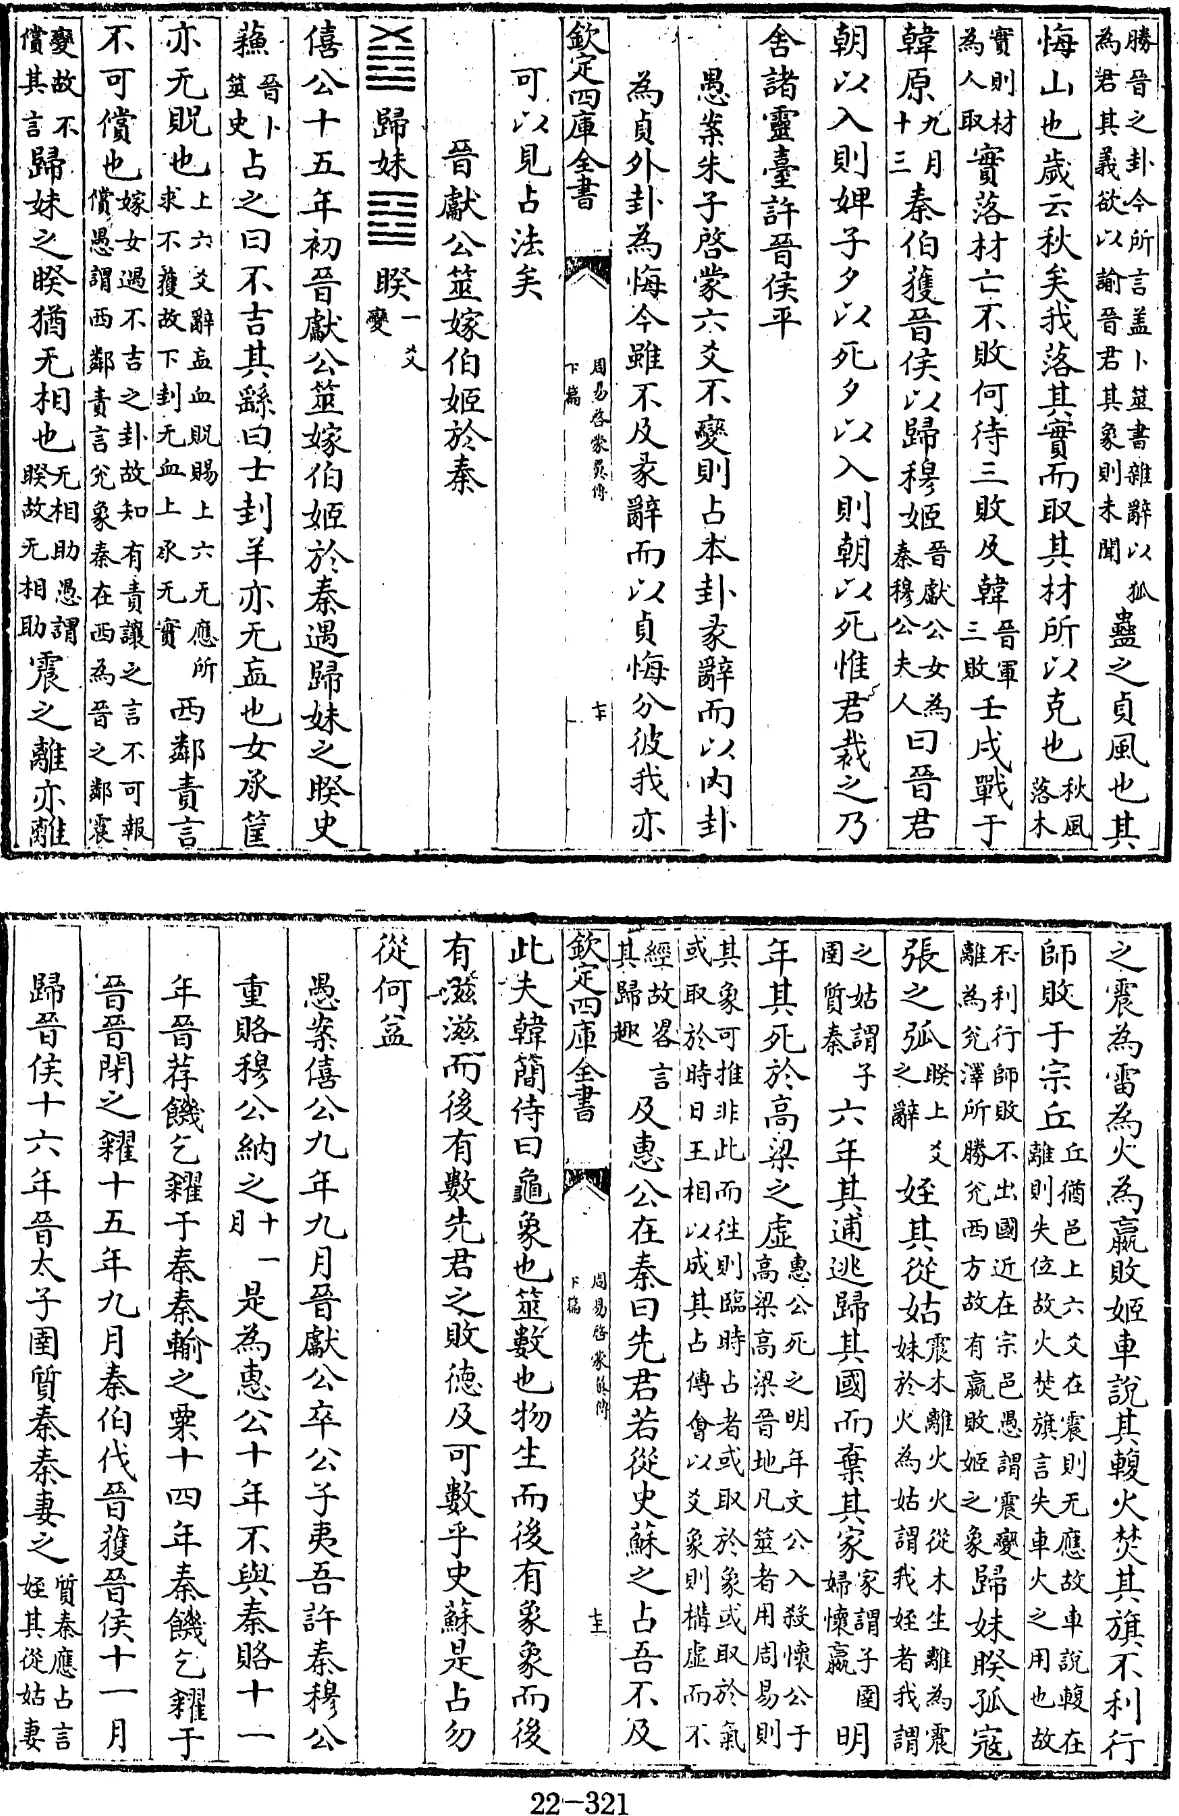 勝晉之卦今所言盖卜筮書雜辭以狐
為君其義欲以諭晉君其象則未聞
蠱之貞風也其
悔山也歲云秋矣我落其實而取其材所以克也
秋風
落木
實則材
為人取
實落材亡不敗何待三敗及韓
晉軍
三敗
壬戌戰于
韓原
九月
十三
秦伯獲晉侯以歸穆姬
晉獻公女為
秦穆公夫人
曰晉君
朝以入則婢子夕以死夕以入則朝以死惟君裁之乃
舍諸靈臺許晉侯平
愚案朱子啓蒙六爻不變則占本卦彖辭而以内卦
為貞外卦為悔今雖不及彖辭而以貞悔分彼我亦
欽定四庫全書
周易啓蒙翼傳
下篇
可以見占法矣
晉獻公筮嫁伯姬於秦
歸妹
睽
一爻
變
僖公十五年初晉獻公筮嫁伯姬於秦遇歸妹之睽史
蘓
晉卜
筮史
占之曰不吉其繇曰士刲羊亦无衁也女承筐
亦无貺也
上六爻辭衁血貺賜上六无應所
求不獲故下刲无血上承无實
西鄰責言
不可償也
嫁女遇不吉之卦故知有責讓之言不可報
償愚謂西鄰責言兊象秦在西為晉之鄰震
變故不
償其言
歸妹之睽猶无相也
无相助愚謂
睽故无相助
震之離亦離
之震為雷為火為嬴敗姬車說其輹火焚其旗不利行
師敗于宗丘
丘猶邑上六爻在震則无應故車説輹在
離則失位故火焚旗言失車火之用也故
不利行師敗不出國近在宗邑愚謂震變
離為兊澤所勝兊西方故有嬴敗姬之象
歸妹睽孤寇
張之弧
睽上爻
之辭
姪其從姑
震木離火火從木生離為震
妹於火為姑謂我姪者我謂
之姑謂子
圉質秦
六年其逋逃歸其國而棄其家
家謂子圉
婦懷嬴
明
年其死於高梁之虛
惠公死之明年文公入殺懷公于
高梁高梁晉地凡筮者用周易則
其象可推非此而往則臨時占者或取於象或取於氣
或取於時日王相以成其占傅會以爻象則構虚而不
經故畧言
其歸趣
及惠公在秦曰先君若從史蘇之占吾不及
欽定四庫全書
周易啓蒙翼傳
下篇
此夫韓簡侍曰龜象也筮數也物生而後有象象而後
有滋滋而後有數先君之敗德及可數乎史蘇是占勿
從何益
愚案僖公九年九月晉獻公卒公子夷吾許秦穆公
重賂穆公納之
十一
月
是為惠公十年不與秦賂十一
年晉荐饑乞糴于秦秦輸之粟十四年秦饑乞糴于
晉晉閉之糴十五年九月秦伯伐晉獲晉侯十一月
歸晉侯十六年晉太子圉質秦秦妻之
質秦應占言
姪其從姑妻
22-321